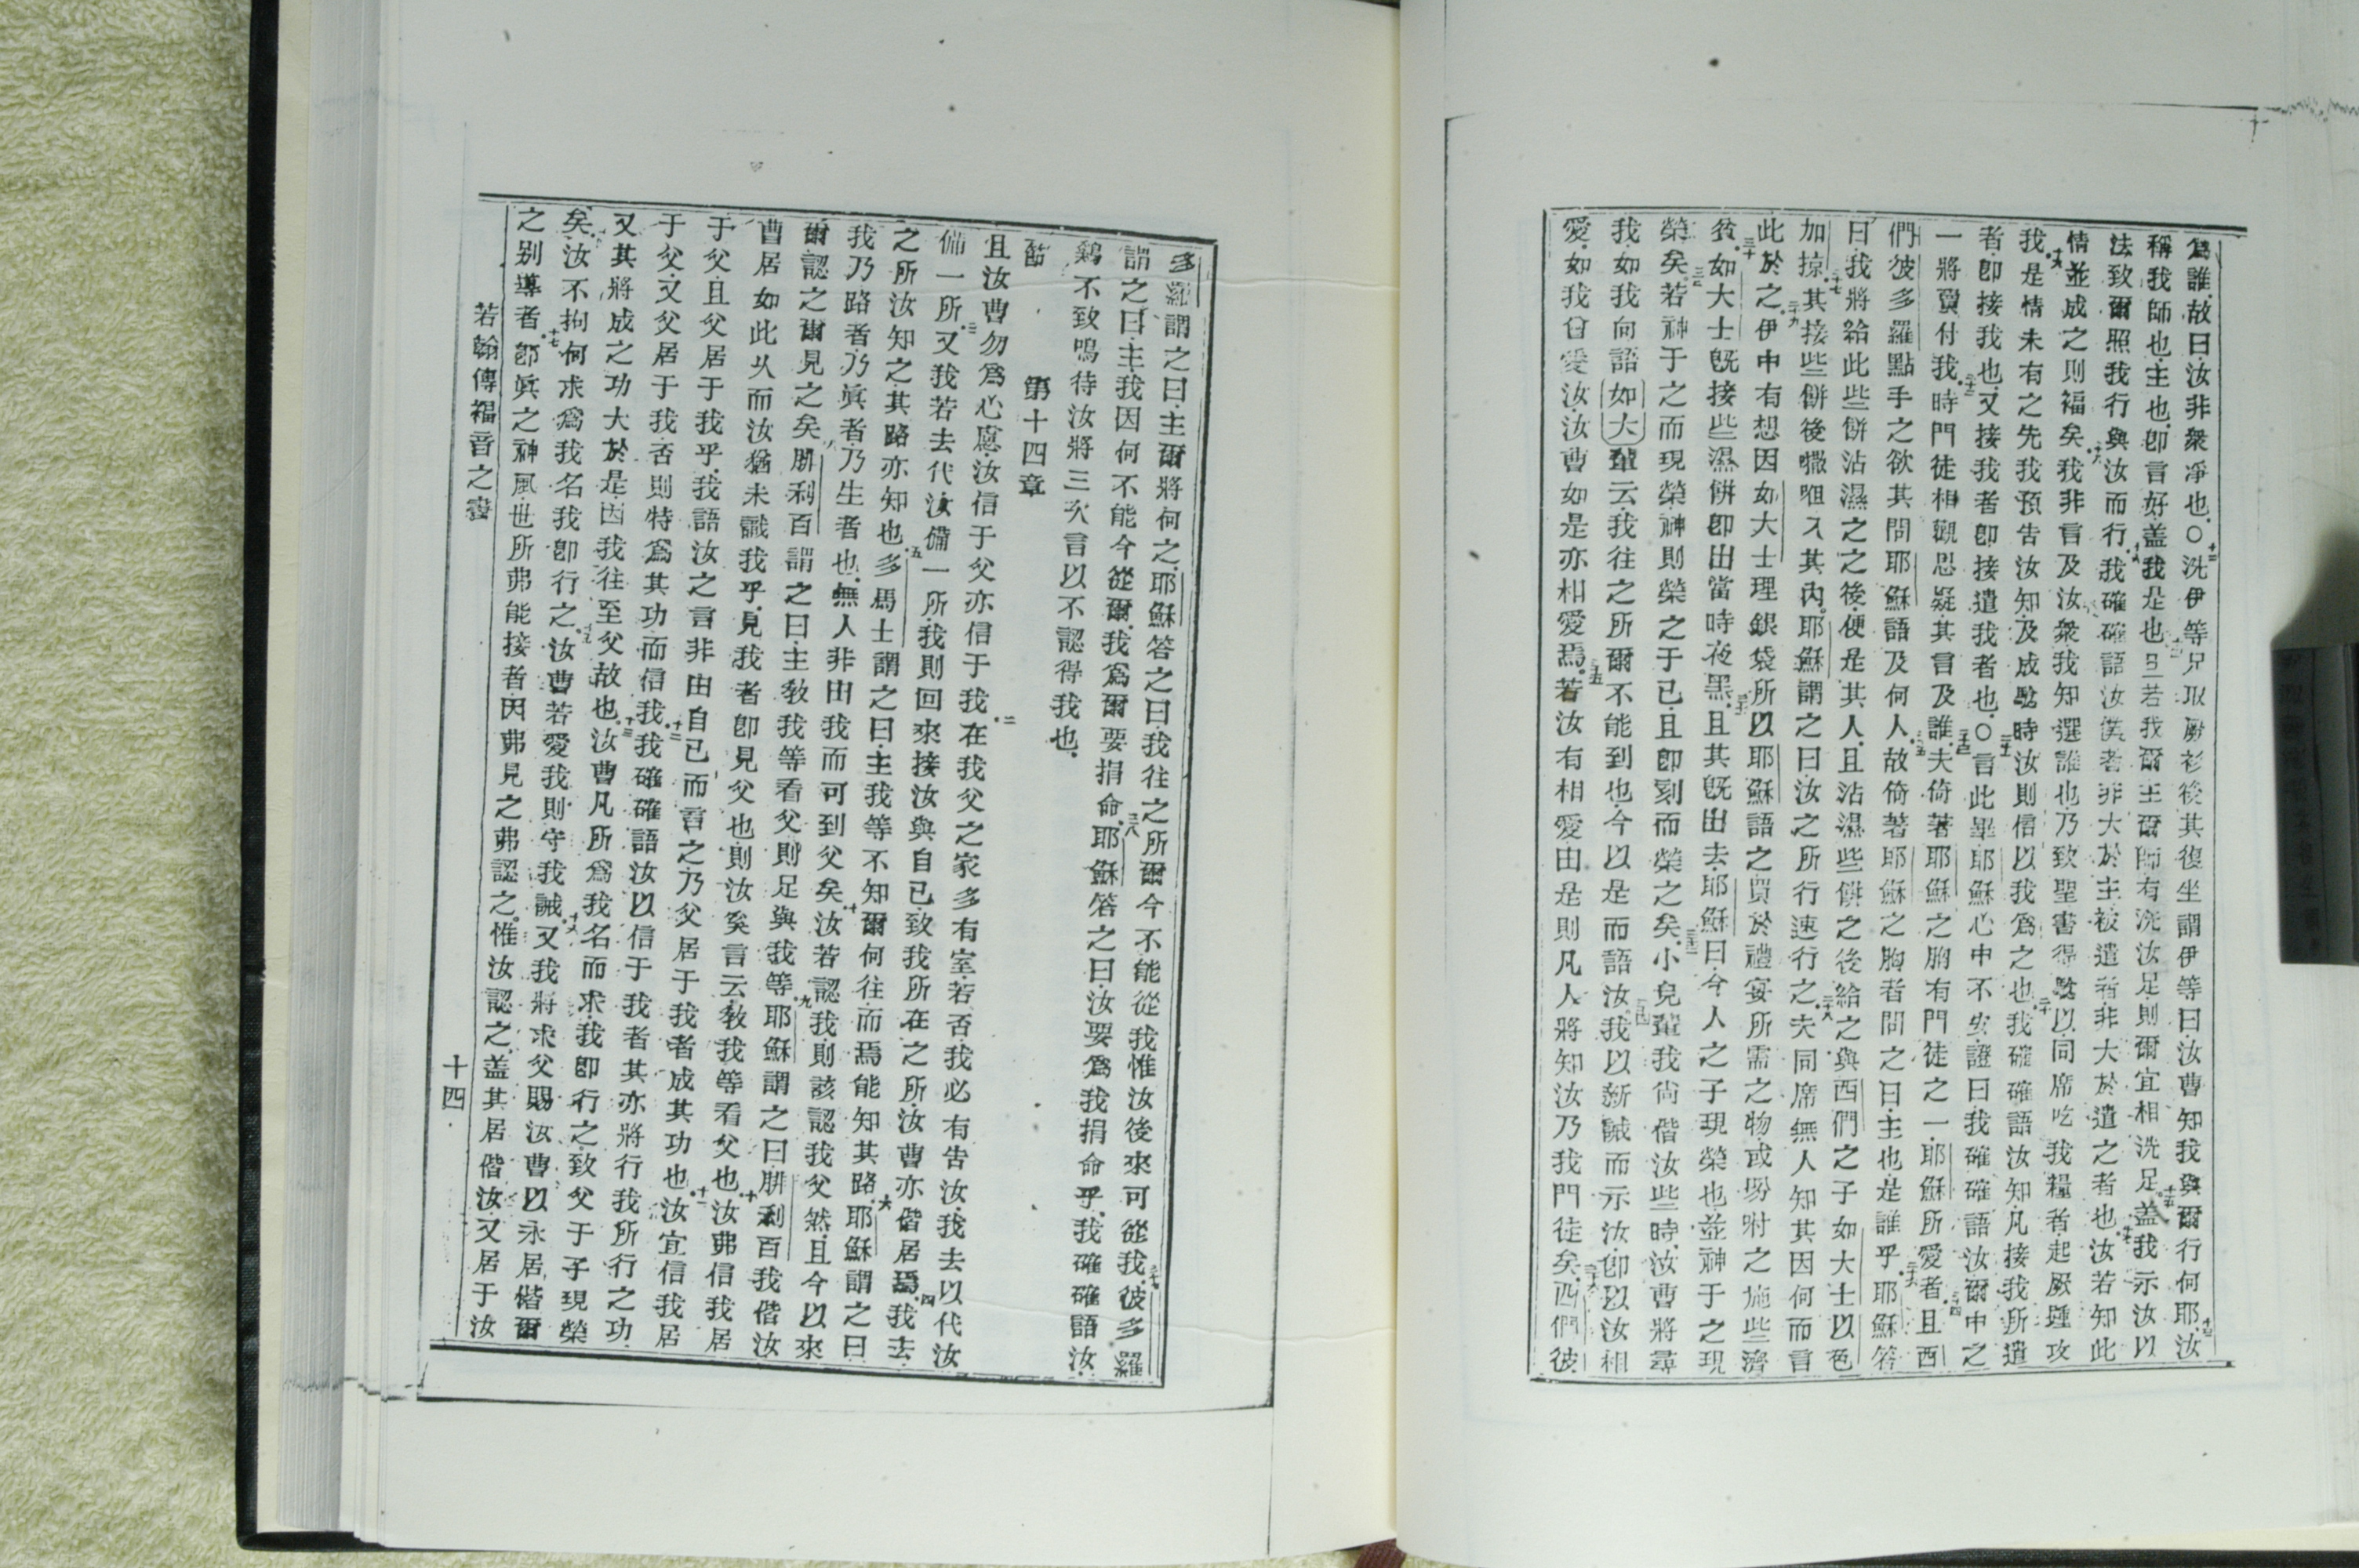 爲誰故曰汝非衆凈也〇洗伊等兄取厥衫後其復坐謂伊等曰汝曹知我與爾行何耶汝
稱我師也主也卽言好盖我是也且若我爾主爾師有洗汝足則爾宜相洗足盖我示汝以
法致爾照我行與汝而行我確確語汝僕者非大於主被遣者非大於遣之者也汝若知此
情並成之則福矣我非言及汝衆我知選誰也乃致聖書得驗以同席吃我糧者起厥踵攻
我是情未有之先我預告汝知及成驗時汝則信以我爲之也我確確語汝知凡接我所遣
者卽接我也又接我者卽接遣我者也〇言此畢耶穌心中不安證曰我確確語汝爾中之
一將賣付我時門徒相觀思疑其言及誰夫倚著耶穌之胸有門徒之一耶穌所愛者且西
們彼多羅點手之欲其問耶穌語及何人故倚著耶穌之胸者問之曰主也是誰乎耶穌答
曰我將給此些餅沾濕之之後便是其人且沾濕些餅之後給之與西們之子如大士以色
加掠其接些餅後𠹌咀入其內耶穌謂之曰汝之所行速行之夫同席無人知其因何而言
此於之伊中有想因如大士理銀袋所以耶穌語之買於禮宴所需之物或吩咐之施些濟
貧如大士旣接些濕餅卽出當時夜黑且其旣出去耶穌曰今人之子現榮也並神于之現
榮矣若神于之而現榮神則榮之于己且卽刻而榮之矣小兒輩我尙偕汝些時汝曹將尋
我如我向語如大輩云我往之所爾不能到也今以是而語汝我以新誡而示汝卽以汝相
愛如我曾愛汝汝曹如是亦相愛焉若汝有相愛由是則凡人將知汝乃我門徒矣西們彼
多羅謂之曰主爾將何之耶穌答之曰我往之所爾今不能從我惟汝後來可從我彼多羅
謂之曰主我因何不能今從爾我爲爾要捐命耶穌答之曰汝要爲我捐命乎我確確語汝
鷄不致鳴待汝將三次言以不認得我也
節 第十四章
且汝曹勿爲心慮汝信于父亦信于我在我父之家多有室若否我必有吿汝我去以代汝
俻一所又我若去代汝備一所我則回來接汝與自己致我所在之所汝曹亦偕居焉我去
之所汝知之其路亦知也多馬士謂之曰主我等不知爾何往而焉能知其路耶穌謂之曰
我乃路者乃眞者乃生者也無人非由我而可到父矣汝若認我則該認我父然且今以來
爾認之爾見之矣腓利百謂之曰主敎我等看父則足與我等耶穌謂之曰腓利百我偕汝
曹居如此久而汝猶未識我乎見我者卽見父也則汝奚言云敎我等看父也汝弗信我居
于父且父居于我乎我語汝之言非由自己而言之乃父居于我者成其功也汝宜信我居
于父又父居于我否則特爲其功而信我我確確語汝以信于我者其亦將行我所行之功
又其將成之功大於是因我往至父故也汝曹凡所爲我名而求我卽行之致父于子現榮
矣汝不拘何求爲我名我卽行之汝曹若愛我則守我誡又我將求父賜汝曹以永居偕爾
之別導者卽眞之神風世所弗能接者因弗見之弗認之惟汝認之盖其居偕汝又居于汝
若翰傳福音之書 十四